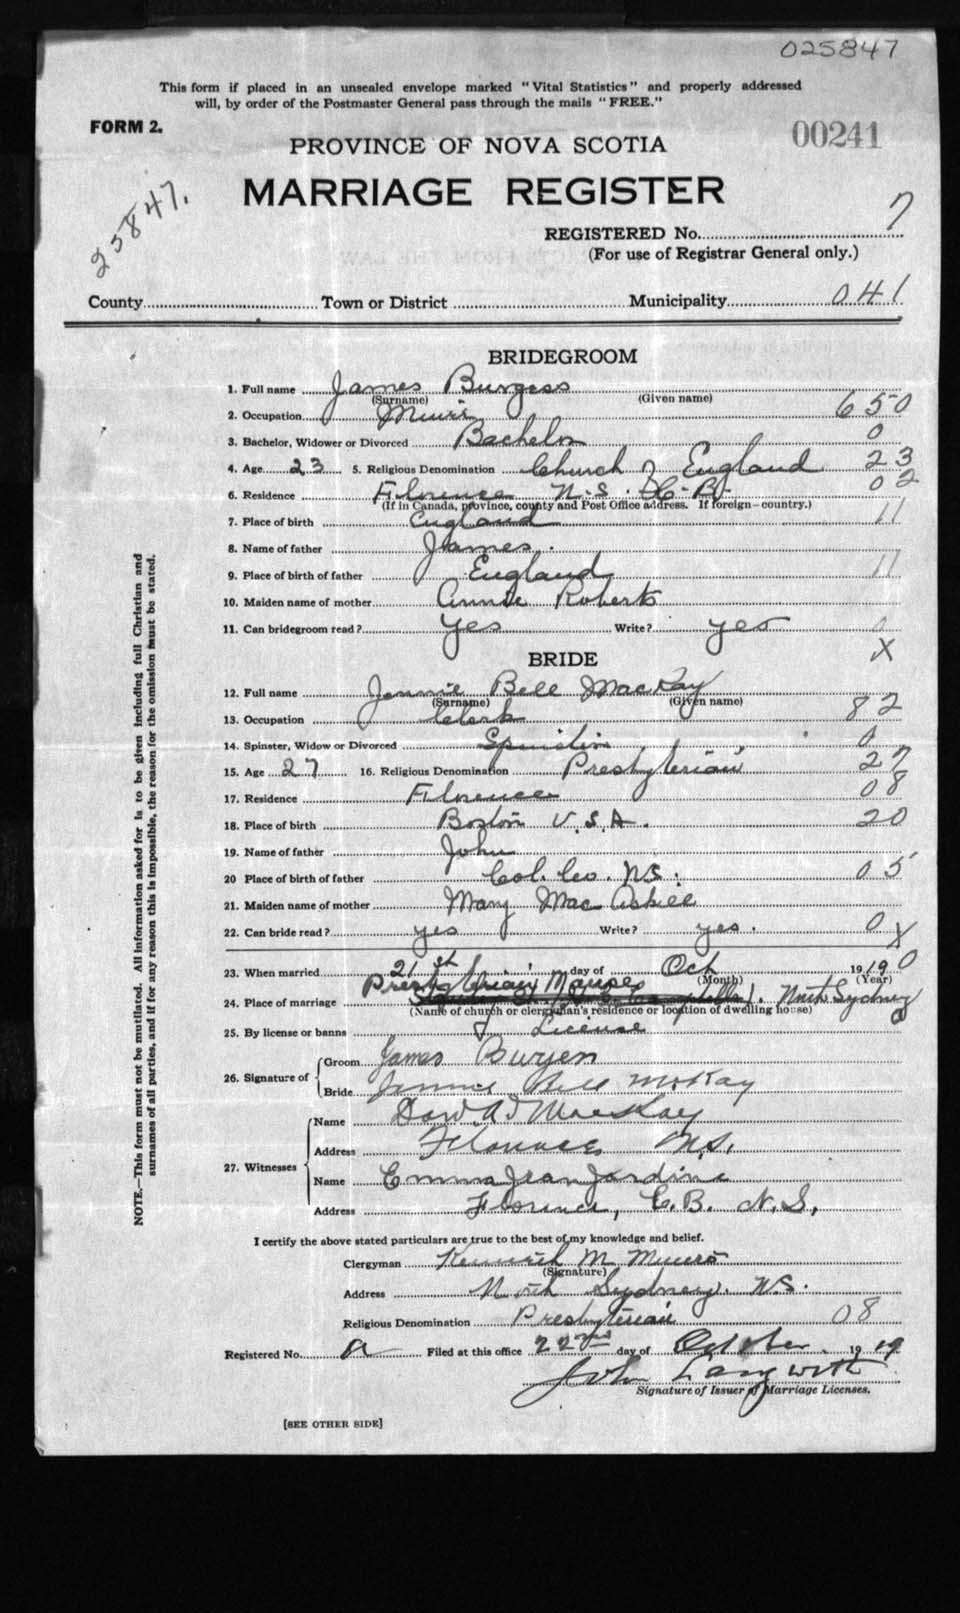 025847
This form if placed in an unsealed envelope marked "Vital Statistics" and properly addressed
will, by order of the Postmaster General pass through the mails "FREE."
FORM 2.
00241
PROVINCE OF NOVA SCOTIA
MARRIAGE REGISTER
25847.
REGISTERED No. 7
(For use of Registrar General only.)
County Town or District Municipality 041
BRIDEGROOM
1. Full name James Burgess
(Surname) (Given name)
2. Occupation 650
3. Bachelor, Widower or Divorced Bachelor 0
4. Age 23 5. Religious Denomination Church of England 23
6. Residence Florence N.S. C.B. 02
(If in Canada, province, county and Post Office address. If foreign—country.)
7. Place of birth England 11
8. Name of father James.
9. Place of birth of father England 11
10. Maiden name of mother Annie Roberts
11. Can bridegroom read? yes Write? yes 0
X
BRIDE
12. Full name Jennie Bell MacKay
(Surname) (Given name)
13. Occupation Clerk 82
14. Spinster, Widow or Divorced Spinster 0
15. Age 27 16. Religious Denomination Presbyterian 27
17. Residence Florence 08
18. Place of birth Boston U.S.A. 20
19. Name of father John
20 Place of birth of father Col. Co. N.S. 05
21. Maiden name of mother Mary MacAskill
22. Can bride read? yes Write? yes. 0
X
23. When married 21st day of Oct 1919 0
(Month) (Year)
24. Place of marriage Presbyterian Manse North Sydney
(Name of church or clergyman's residence or location of dwelling house)
25. By license or banns License
26. Signature of Groom James Burgess
Bride Jennie Bell McKay
27. Witnesses Name MacKay
Address Florence N.S.
Name Emma Jean Jardine
Address Florence, C.B. N.S.
I certify the above stated particulars are true to the best of my knowledge and belief.
Clergyman Kenneth M Munro
(Signature)
Address North Sydney. N.S.
Religious Denomination Presbyterian 08
Registered No. Filed at this office 22nd day of October 1919
John Langwith
Signature of Issuer of Marriage Licenses.
[SEE OTHER SIDE]
NOTE.—This form must not be mutilated. All information asked for is to be given including full Christian and
surnames of all parties, and if for any reason this is impossible, the reason for the omission must be stated.